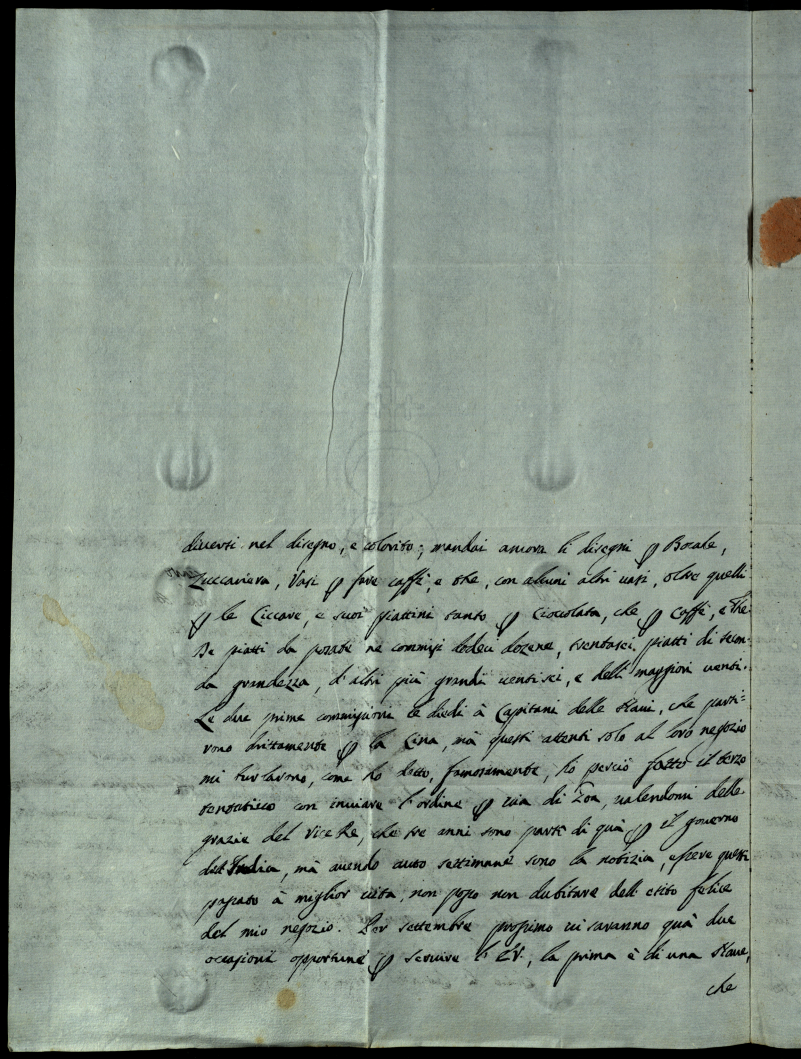 diversi nel disegno, e colorito; mandai ancora li disegni ꝑ Bocale,
Zuccariera, Vasi ꝑ fare caffè, e the, con alcuni altri vasi, oltre quelli
ꝑ le Ciccare, e suoi piattini tanto ꝑ Cioccolata, che ꝑ Caffè, e The
De piatti da posate ne commisi dodeci dozene, trentasei piatti di secon-
da grandezza, d'altri più grandi ventisei, e delli maggiori venti.
Le due prime commissioni le diedi à Capitani delle Navi, che parti-
rono drittamente ꝑ la Cina, mà questi attenti solo al loro negozio
mi burlarono, come ho detto, famosamente, hò perciò fatto il terzo
tentativo con inviare l'ordine ꝑ via di Goa, valendomi delle
grazie del Vice Rè, che tre anni sono partì di quà ꝑ il governo
dell'India, mà avendo auto settimane sono la notizia, essere questi
passato à miglior vita, non posso non dubitare dell'esito felice
del mio negozio. Per settembre prossimo vi saranno quà due
occasioni opportune ꝑ servire l'EV., la prima è di una Nave,
che